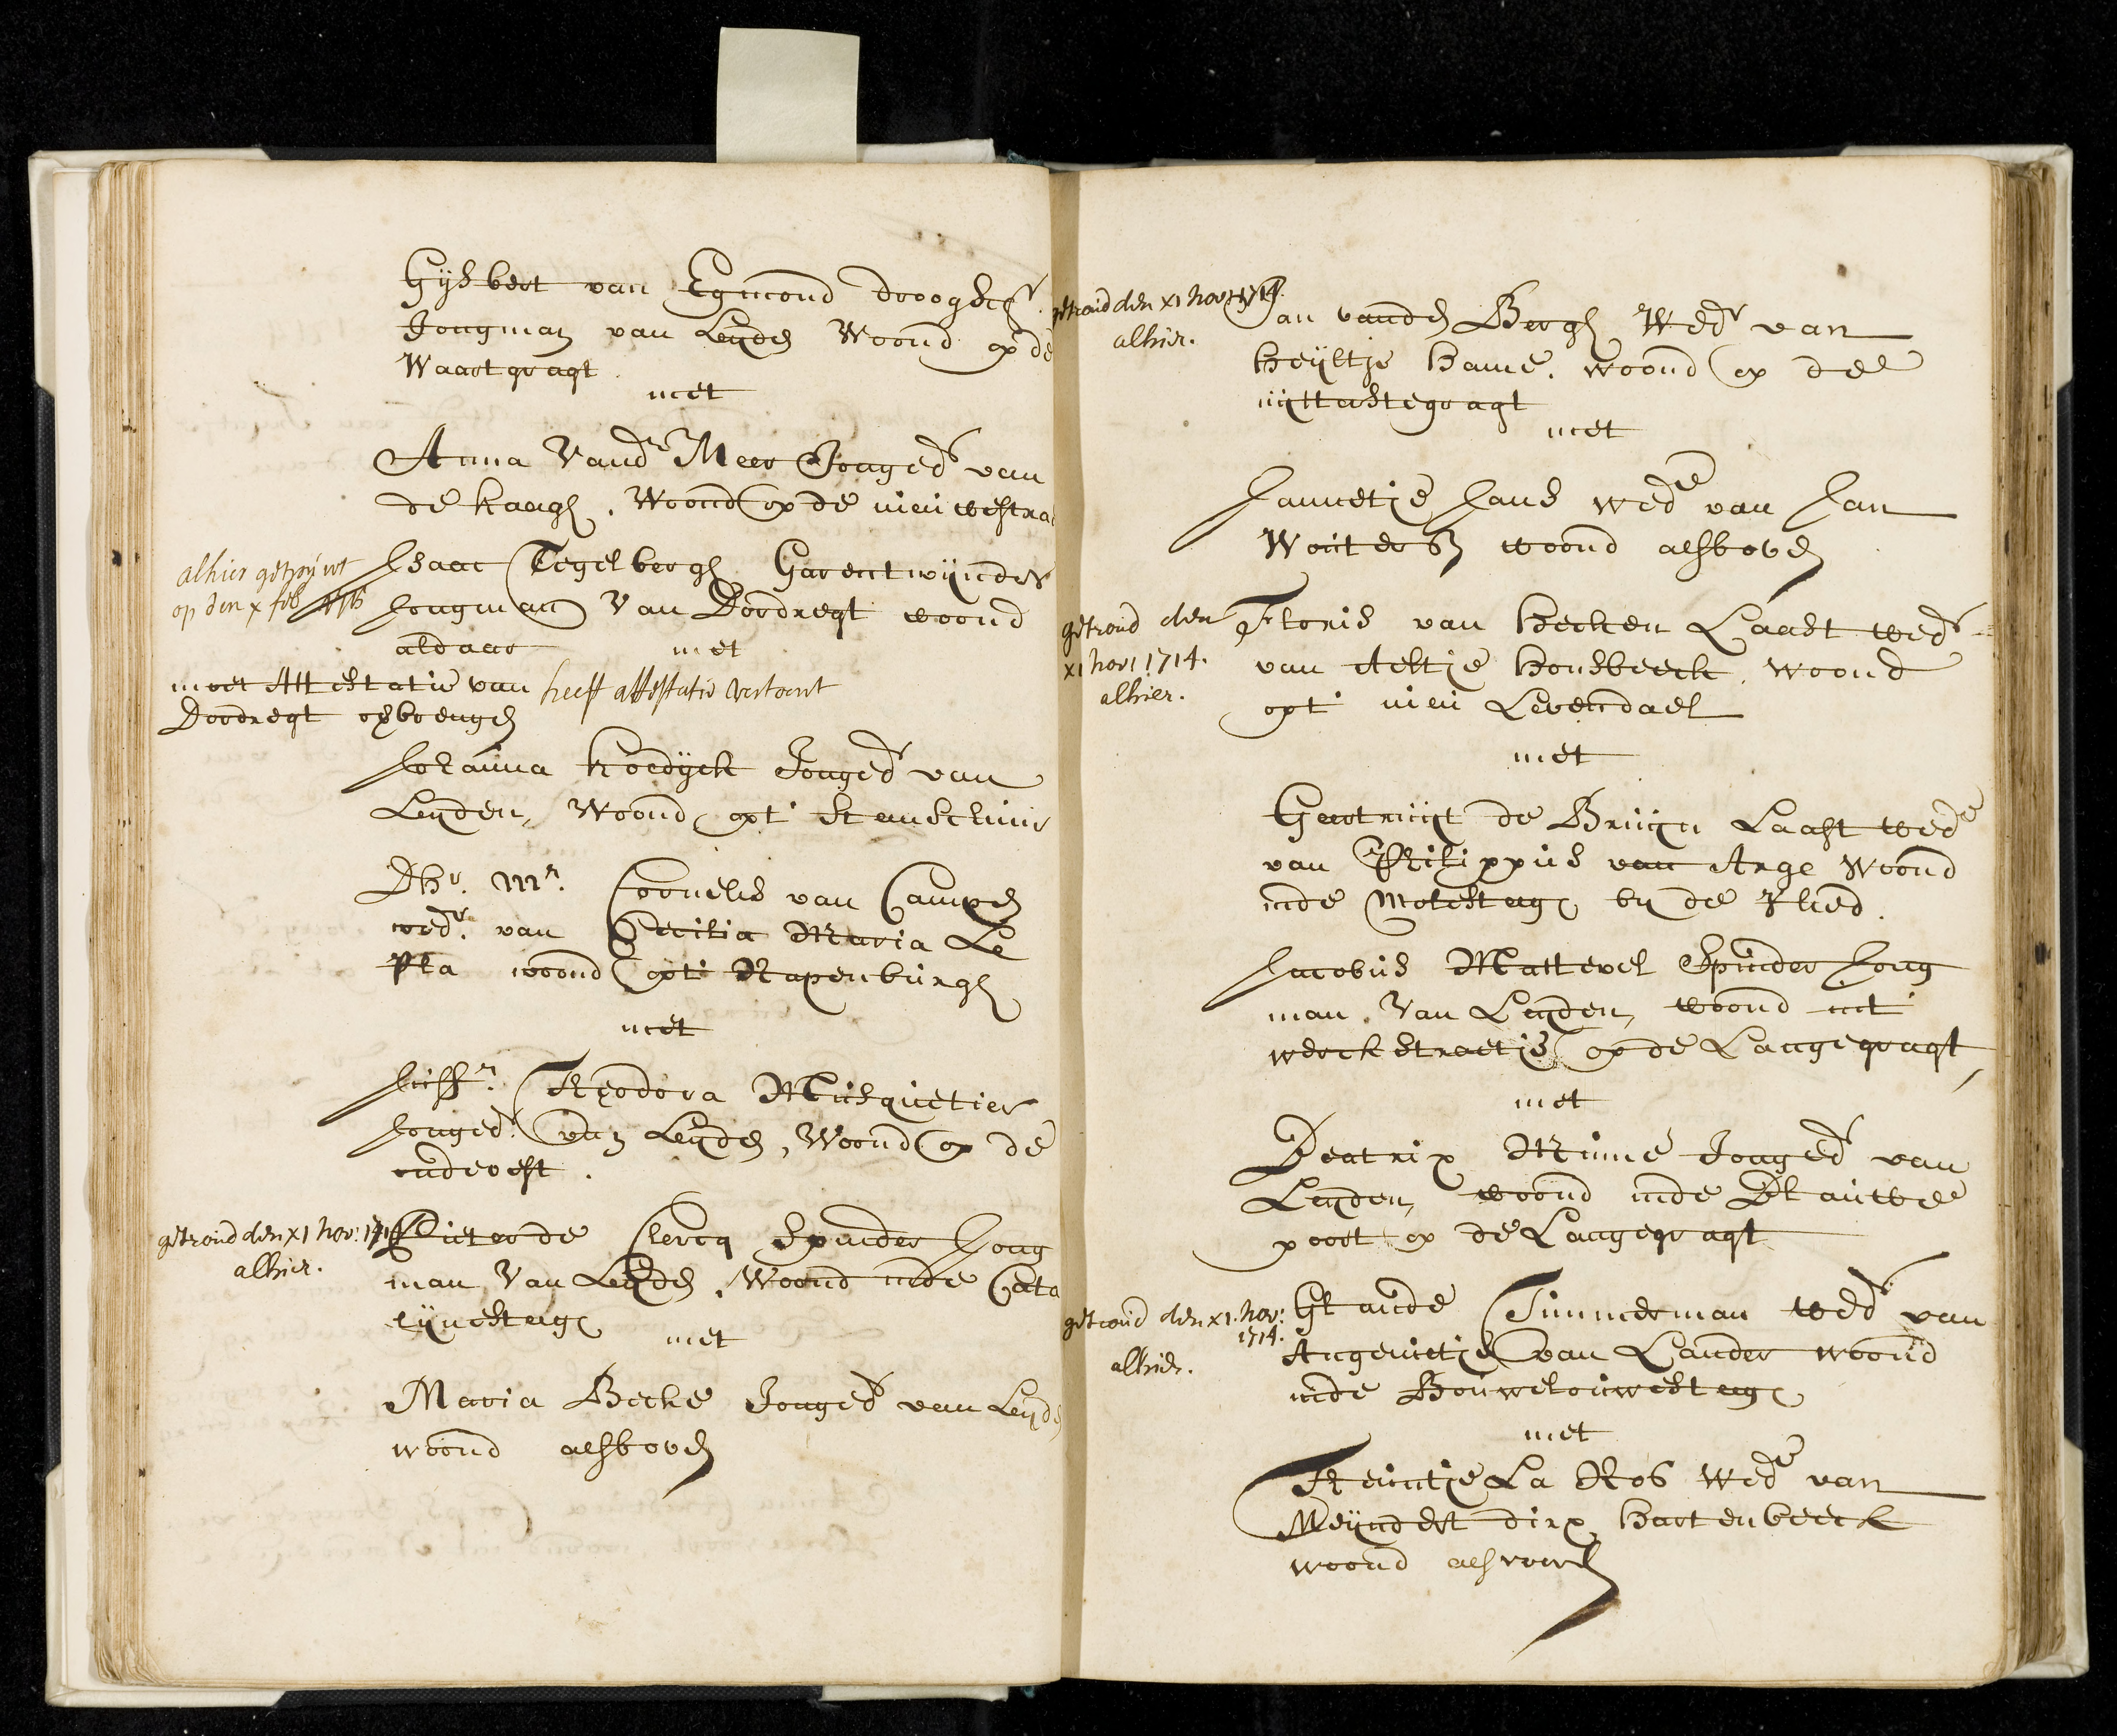 Gijsbert van Egmond droogsch.r
Jongman van Leyden Woond op de
Waartgragt
met
Anna Vand.r Meer Jonged.r van
de Kaagh, Woond op de nieuwestraa
alhier getrouwt
op den x feb 1715
Isaac Tegelbergh Garentwijnder
Jongman Van Dordregt woond
aldaar met
moet Attestatie van heeft attestatie vertoont
Dordregt opbrengen
Johanna Koedyck Jonged.r van
Leyden, Woond opt Stenschuur
Dhr. Mr. Cornelis van Campen
wedr. van Cecilia Maria Le
Pla woond opt Rapenburgh
met
Juffr. Theodora Musquetier
Jonged.r van Leyden, Woond op de
oudevest.
getroud den x1 nov: 1714
alhier.
Pieter de Clercq Spinder Jong
man Van Leyden, Woond inde Cata
lijnesteeg
met
Maria Becke Jonged.r van Leyden
woond alsboven
getroud den x1 nov: 1714
alhier.
Jan vanden Bergh Wed.r van
Heyltje Hame, woond op de
uyttestegragt
met
Jannetje Jans wed.e van Jan
Woutersz woond alsboven
getroud den
x1 nov: 1714.
alhier.
Floris van Hecken Laast wed.r
van Aeltje Honsbeeck, woond
opt nieu Levendael
met
Geertruijt de Bruijn Laast wed.e
van Philippus van Arge Woond
inde Molesteeg by de Vlied.
Jacobus Mattevel Spinder Jong
man, Van Leyden, woond int
werckstraetje op de Langegragt
met
Beatrix Minne Jonged.r van
Leyden, woond inde Blauwe
poort op de Langegragt
getroud den x1. nov:
1714.
alhier.
Glaude Timmerman wed.r van
Angenietje van Lander woond
inde Bouwelouwesteeg
met
Theuntje La Ros Wed.e van
Meyndert dirx Hartenbeeck
woond alsvoorn